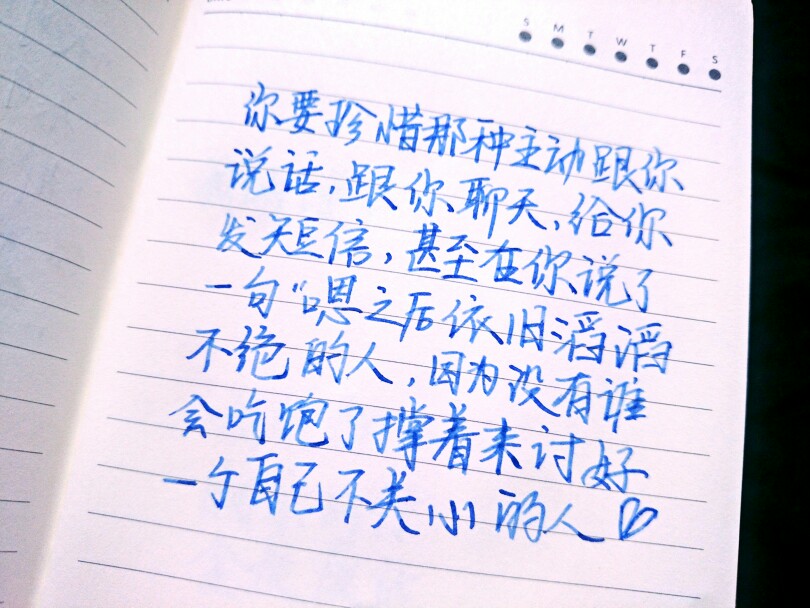 S M T W T F S
你要珍惜那种主动跟你
说话,跟你聊天,给你
发短信,甚至在你说了
一句“嗯之后依旧滔滔
不绝的人,因为没有谁
会吃饱了撑着来讨好
一个自己不关小的人♡